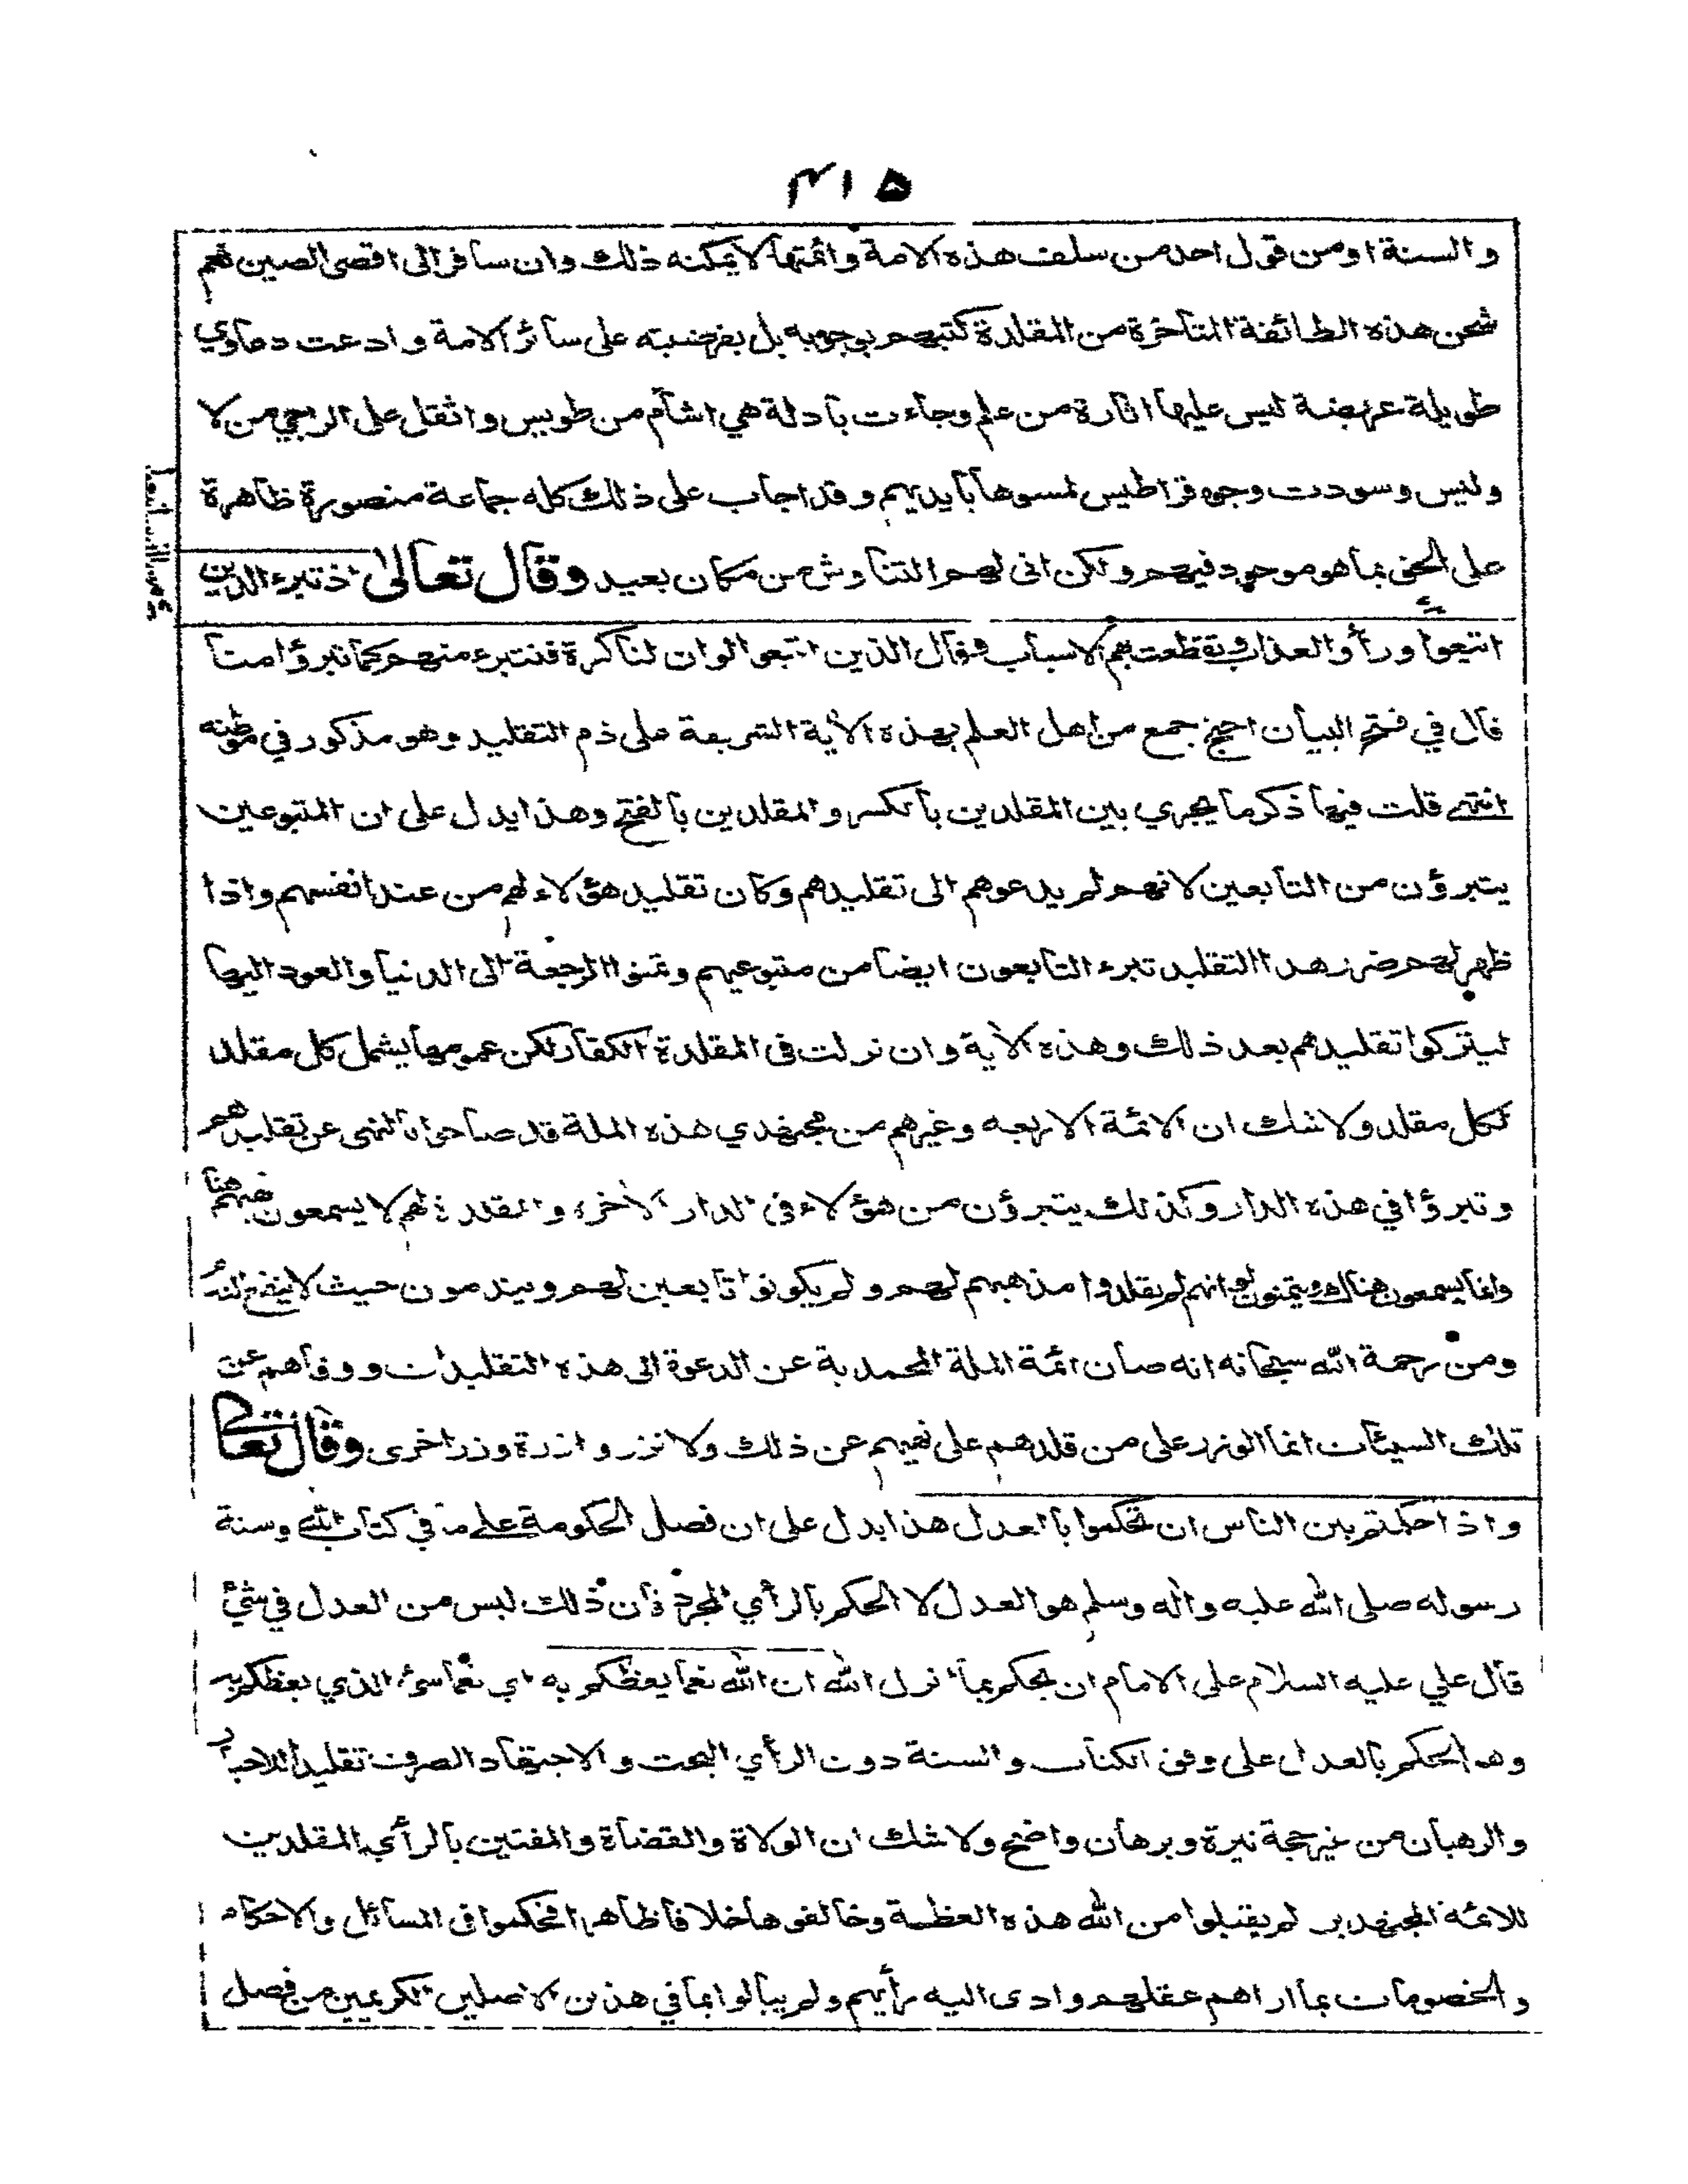 ٤١٥
والسنة او من قول احد من سلف هذه الامة وائمتها لا يمكنه ذلك وان سافر الى اقصى الصين نعم
شحن هذه الطائفة المتاخرة من المقلدة كتبهم بوجوبه بل بفرضيته على سائر الامة وادعت دعاوي
طويلة عريضة ليس عليها اثارة من علم وجاءت بادلة هي اشأم من طويس واثقل على الروح من لا
وليس وسودت وجوه قراطيس لمسوها بايديهم وقد اجاب على ذلك كله جماعة منصورة ظاهرة
على الحق بما هو موجود فيهم ولكن انى لهم التناوش من مكان بعيد وقال تعالى اذ تبرء الذين
اتبعوا ورأوا العذاب وتقطعت بهم الاسباب وقال الذين اتبعوا لو ان لنا كرة فنتبرء منهم كما تبرؤا منا
قال في فتح البيان احتج جمع من اهل العلم بهذه الاية الشريفة على ذم التقليد وهو مذكور في موطنه
انتهى قلت فيها ذكر ما يجري بين المقلدين بالكسر والمقلدين بالفتح وهذا يدل على ان المتبوعين
يتبرؤن من التابعين لانهم لم يدعوهم الى تقليدهم وكان تقليد هؤلاء لهم من عند انفسهم واذا
ظهر لهم ضرر هذا التقليد تبرء التابعون ايضا من متبوعيهم وتمنوا الرجعة الى الدنيا والعود اليها
ليتركوا تقليدهم بعد ذلك وهذه الاية وان نزلت في المقلدة الكفار لكن عمومها يشمل كل مقلد
لكل مقلد ولا شك ان الائمة الاربعة وغيرهم من مجتهدي هذه الملة قد صاحوا بالنهى عن تقليدهم
وتبرؤا في هذه الدار وكذلك يتبرؤن من هؤلاء في الدار الاخرة والمقلدة لهم لا يسمعون نهيهم هنا
وانما يسمعون هناك ويتمنون لو انهم لم يقلدوا مذهبهم لهم ولم يكونوا تابعين لهم ويندمون حيث لا ينفع الندم
ومن رحمة الله سبحانه انه صان ائمة الملة المحمدية عن الدعوة الى هذه التقليدات ووقاهم عن
تلك السيئات انما الوزر على من قلدهم على نهيهم عن ذلك ولا تزر وازرة وزر اخرى وقال تعالى
واذا حكمتم بين الناس ان تحكموا بالعدل هذا يدل على ان فصل الحكومة على ما في كتاب الله وسنة
رسوله صلى الله عليه واله وسلم هو العدل لا الحكم بالرأي المجرد فان ذلك ليس من العدل في شئ
قال علي عليه السلام على الامام ان يحكم بما انزل الله ان الله نعما يعظكم به اي نعما شئ الذي يعظكم به
وهو الحكم بالعدل على وفق الكتاب والسنة دون الرأي البحت والاجتهاد الصرف تقليدا للاحبار
والرهبان من غير حجة نيرة وبرهان واضح ولا شك ان الولاة والقضاة والمفتين بالرأي المقلدين
للائمة المجتهدين لم يقبلوا من الله هذه العظة وخالفوها خلافا ظاهرا فحكموا في المسائل والاحكام
والخصومات بما اراهم عقلهم وادى اليه رأيهم ولم يبالوا بما في هذين الاصلين الكريمين من فصل